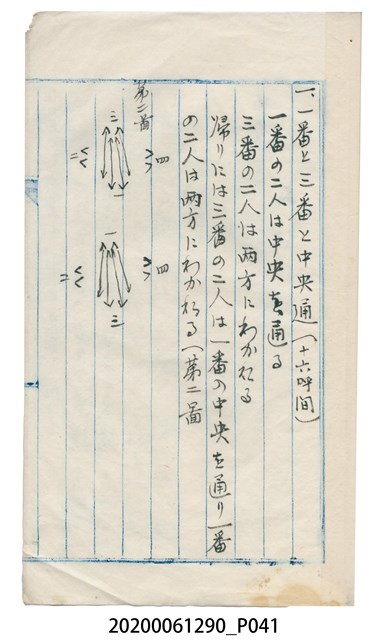 一、一番と三番と中央通(十六呼間)
一番の二人は中央を通る
三番の二人は両方にわかれる
帰りには三番の二人は一番の中央を通り一番
の二人は両方にわかれる(第二図
第二圖
三
一
四
二
一
三
四
二
20200061290_P041